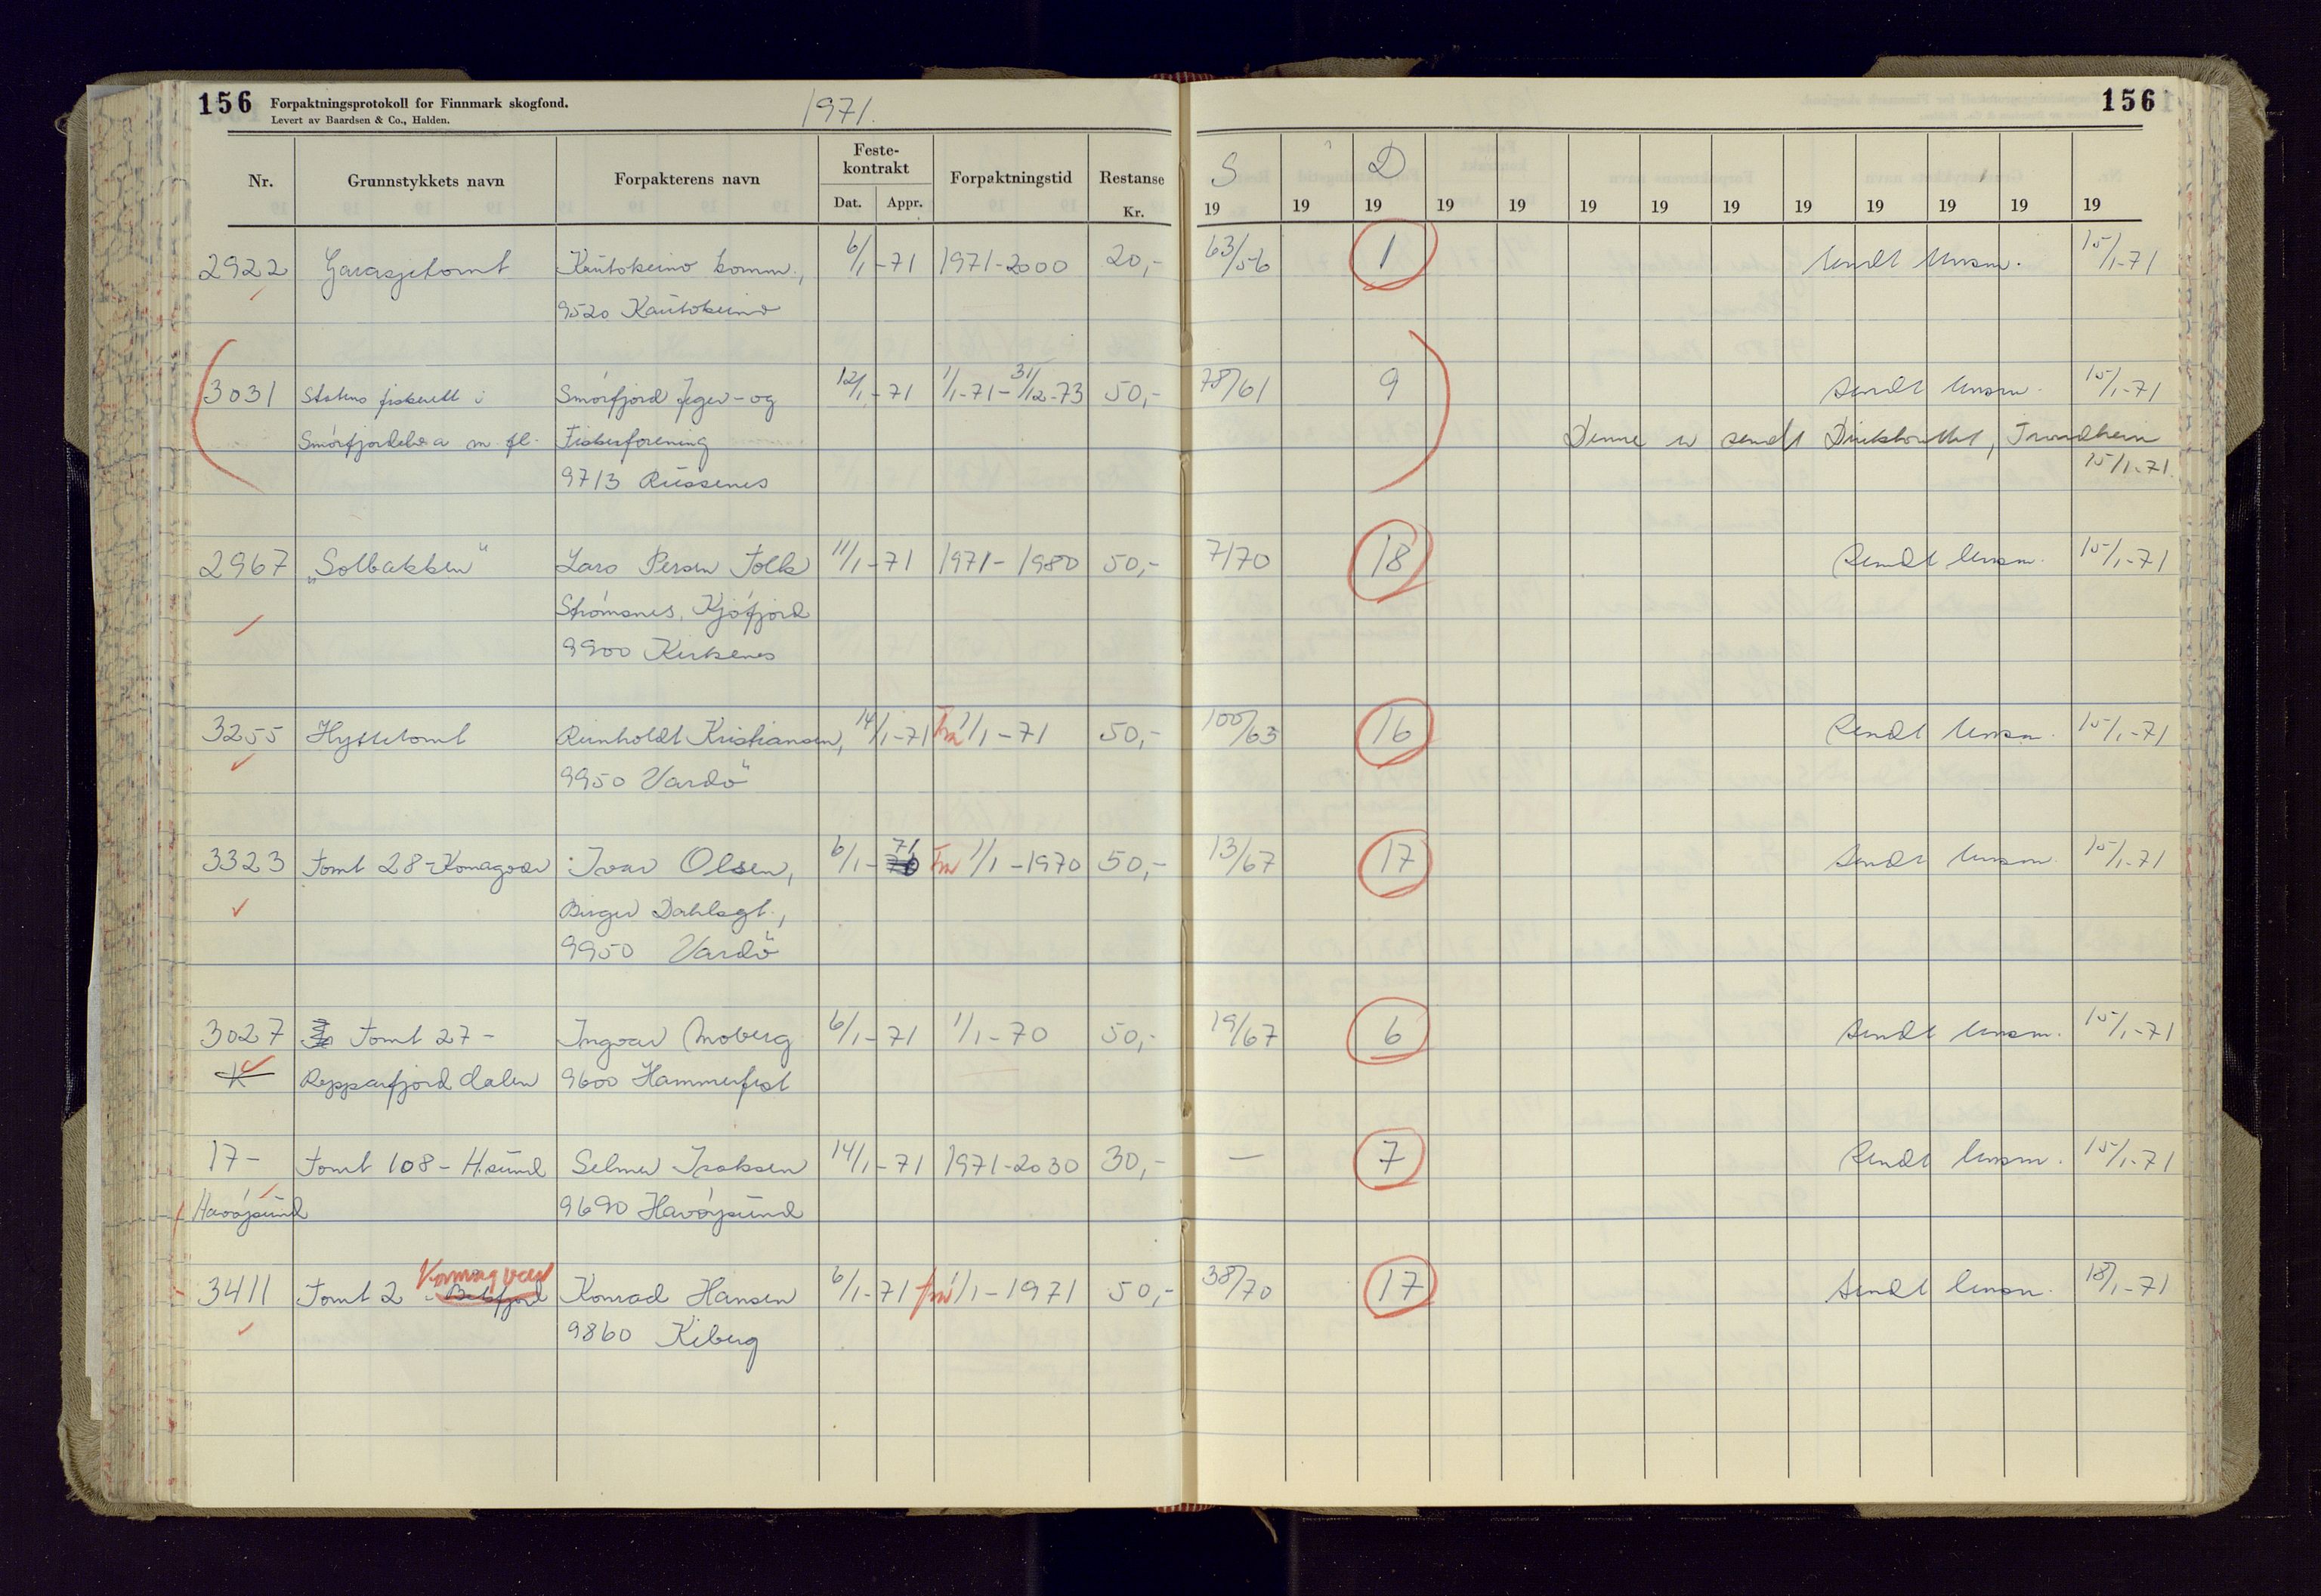 156 Forpaktningsprotokoll for Finnmark skogfond. 1971. 156
Levert av Baardsen & Co., Halden.
Nr. Grunnstykkets navn Forpakterens navn Feste-kontrakt Dat. Appr. Forpaktningstid Restanse Kr. S D
19 19 19 19 19 19 19 19 19 19 19 19 19
2922 Garasjetomt Kautokeino komm., 6/1-71 1971-2000 20,- 63/56 1 Sendt 15/1-71
9520 Kautokeino
3031 Statens fiskerett i Smörfjord Jeger- og 12/1-71 1/1-71-31/12-73 50,- 78/61 9 Sendt 15/1-71
Smörfjordelva m. fl. Fiskerforening Denne er sendt Direktoratet, Trondheim
9713 Russenes 15/1-71.
2967 „Solbakken" Lars Persen Folk 11/1-71 1971-1980 50,- 7/70 18 Sendt 15/1-71
Strömsnes, Kjöfjord
9900 Kirkenes
3255 Hyttetomt Reinholdt Kristiansen, 14/1-71 Fra 1/1-71 50,- 100/63 16 Sendt 15/1-71
9950 Vardö
3323 Tomt 28-Komagvær Ivar Olsen, 6/1-71 Fra 1/1-1970 50,- 13/67 17 Sendt 15/1-71
Birger Dahlsgt.,
9950 Vardö
3027 Tomt 27- Ingvar Moberg 6/1-71 1/1-70 50,- 19/67 6 Sendt 15/1-71
K Repparfjorddalen 9600 Hammerfest
17- Tomt 108-H.sund Selmer Isaksen 14/1-71 1971-2030 30,- — 7 Sendt 15/1-71
Havöysund 9690 Havöysund
Komagvær
3411 Tomt 2 - Båtsfjord Konrad Hansen 6/1-71 fra 1/1-1971 50,- 38/70 17 Sendt 18/1-71
9860 Kiberg